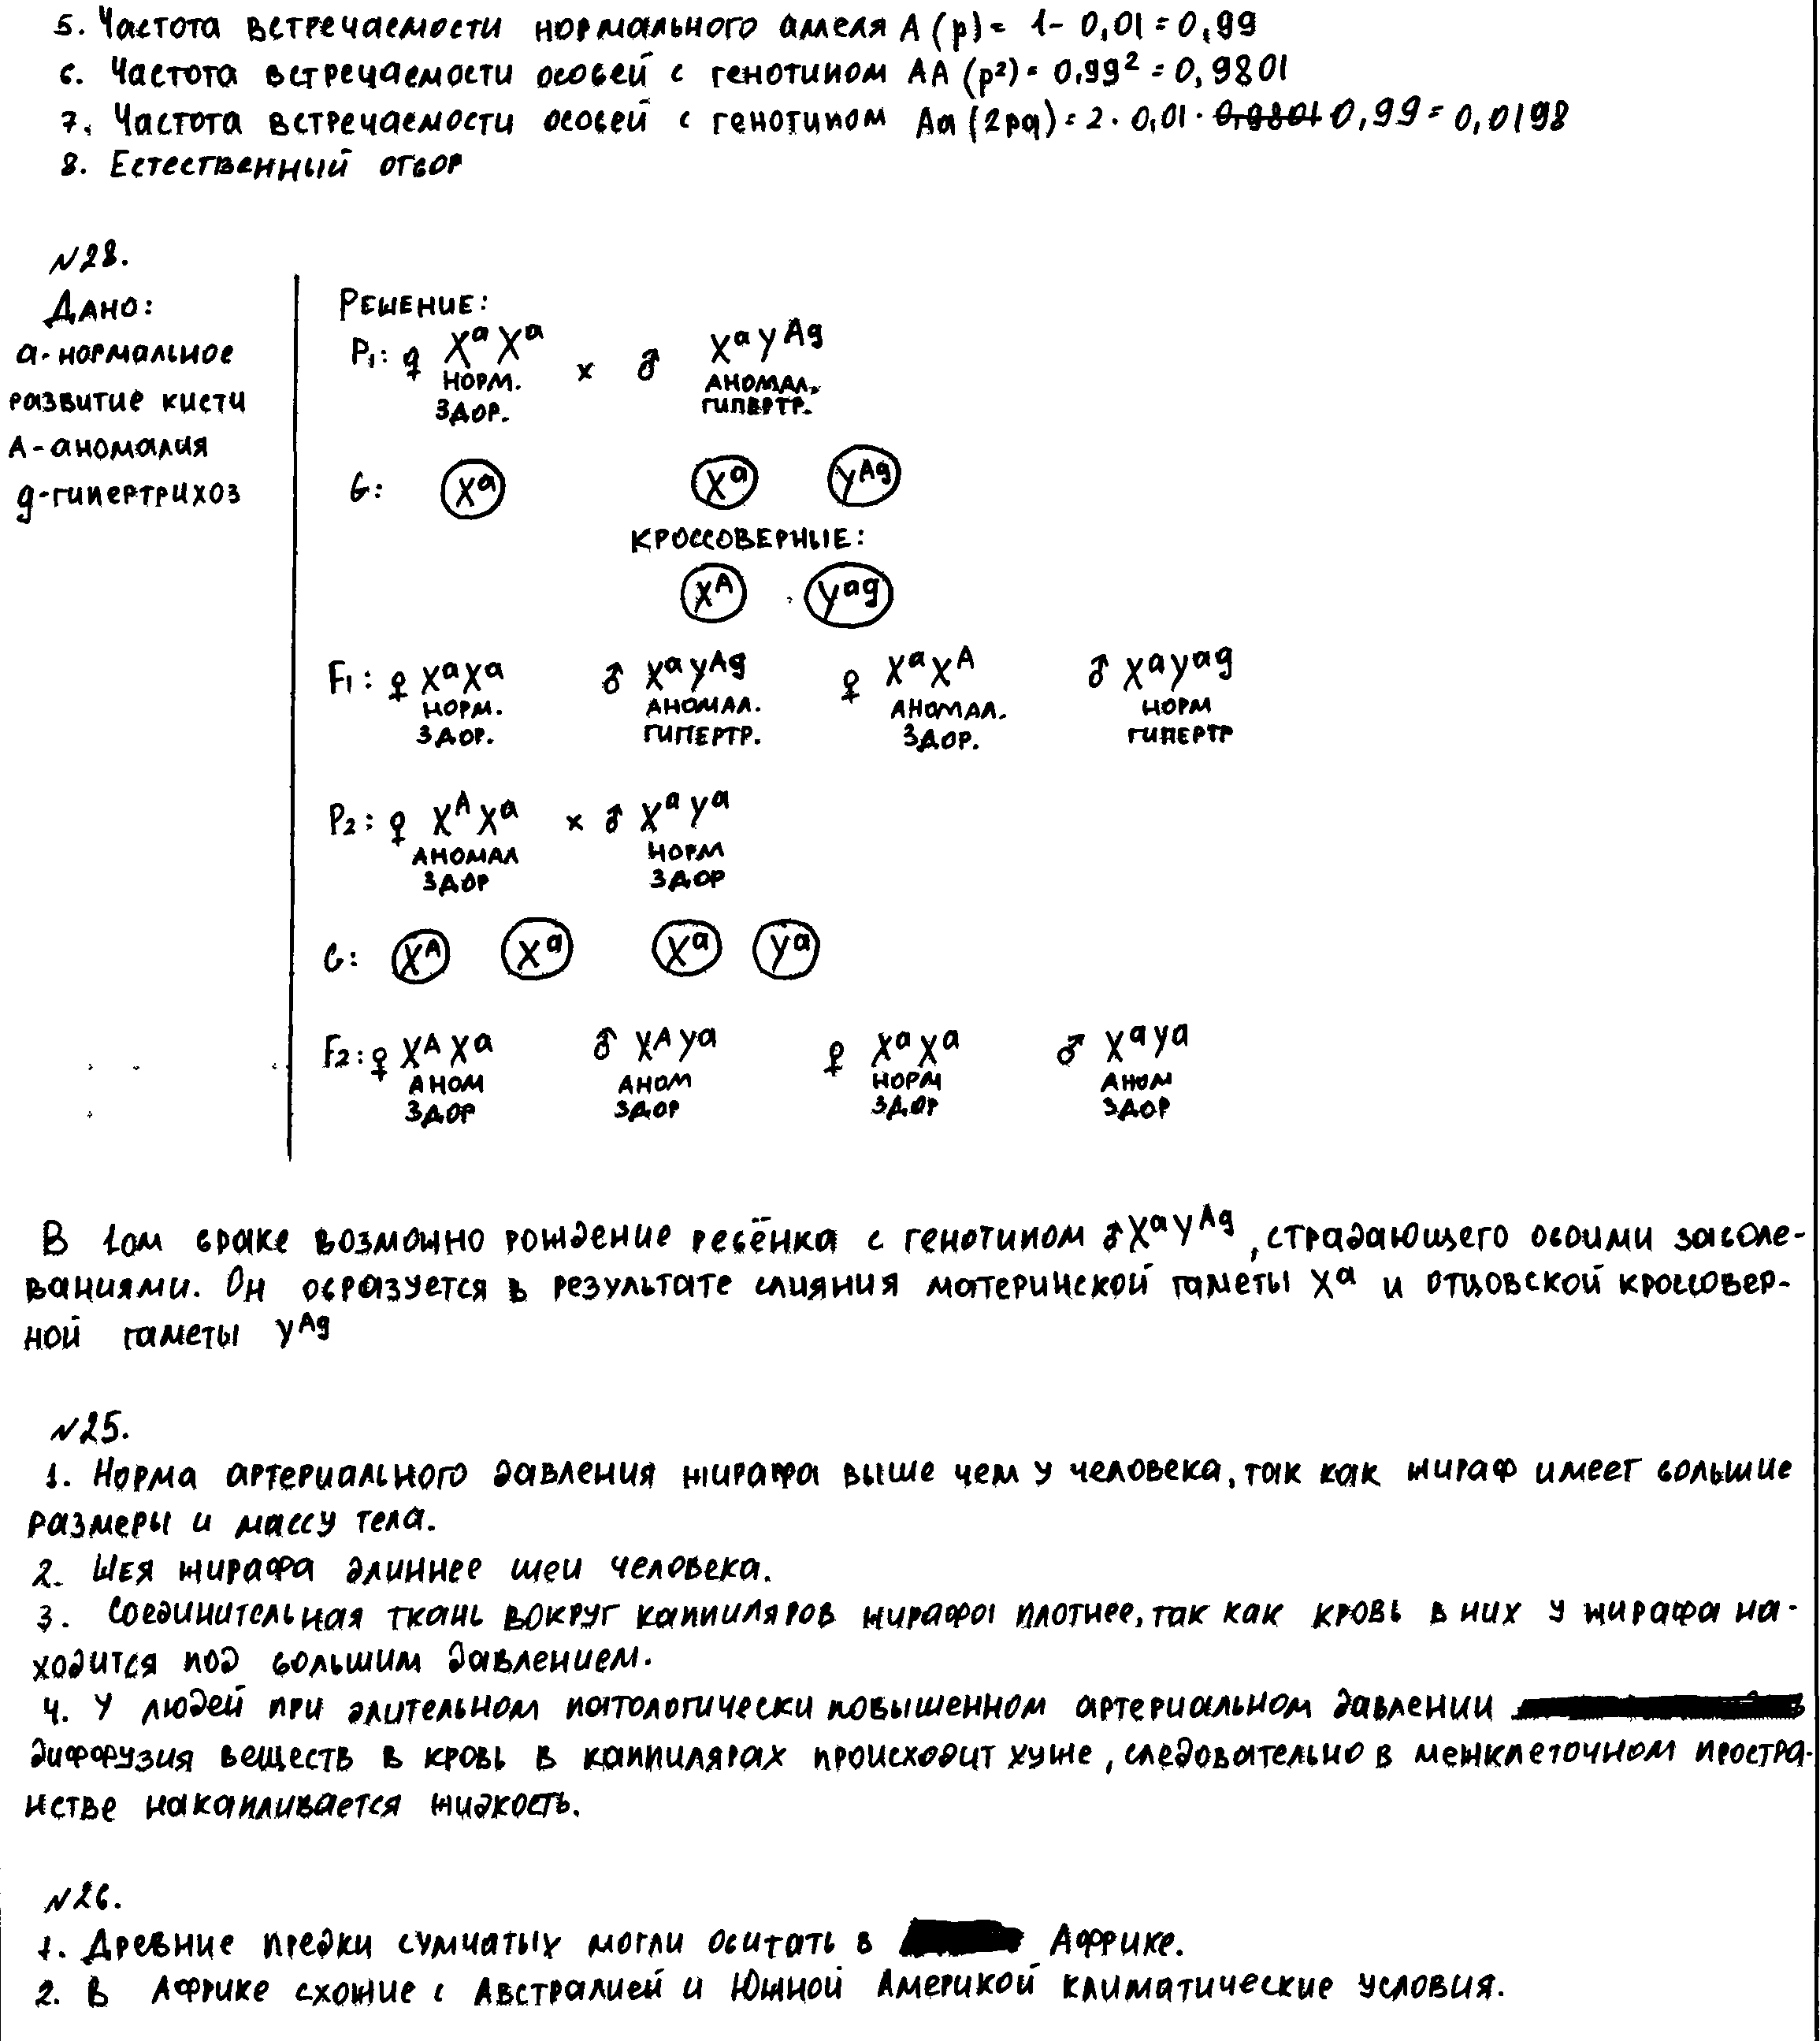 5. Частота встречаемости нормального аллеля A (p) = 1 - 0,01 = 0,99
6. Частота встречаемости особей с генотипом AA (p²) = 0,99² = 0,9801
7. Частота встречаемости особей с генотипом Aa (2pq) = 2 · 0,01 · 0,9801 0,99 = 0,0198
8. Естественный отбор
№28.
Дано:
а - нормальное
развитие кисти
А - аномалия
g - гипертрихоз
Решение:
P₁: ♀ XᵃXᵃ × ♂ XᵃYᴬᵍ
норм. аномал.
здор. гипертр.
G: Xᵃ Xᵃ Yᴬᵍ
кроссоверные:
Xᴬ Yᵃᵍ
F₁: ♀ XᵃXᵃ ♂ XᵃYᴬᵍ ♀ XᵃXᴬ ♂ XᵃYᵃᵍ
норм. аномал. аномал. норм
здор. гипертр. здор. гипертр
P₂: ♀ XᴬXᵃ × ♂ XᵃYᵃ
аномал норм
здор здор
G: Xᴬ Xᵃ Xᵃ Yᵃ
F₂: ♀ XᴬXᵃ ♂ XᴬYᵃ ♀ XᵃXᵃ ♂ XᵃYᵃ
аном аном норм аном
здор здор здор здор
В 1ом браке возможно рождение ребёнка с генотипом ♂XᵃYᴬᵍ, страдающего обоими заболе-
ваниями. Он образуется в результате слияния материнской гаметы Xᵃ и отцовской кроссовер-
ной гаметы Yᴬᵍ
№25.
1. Норма артериального давления жирафа выше чем у человека, так как жираф имеет большие
размеры и массу тела.
2. Шея жирафа длиннее шеи человека.
3. Соединительная ткань вокруг каппиляров жирафа плотнее, так как кровь в них у жирафа на-
ходится под большим давлением.
4. У людей при длительном патологически повышенном артериальном давлении
диффузия веществ в кровь в каппилярах происходит хуже, следовательно в межклеточном простра-
нстве накапливается жидкость.
№26.
1. Древние предки сумчатых могли обитать в Африке.
2. В Африке схожие с Австралией и Южной Америкой климатические условия.